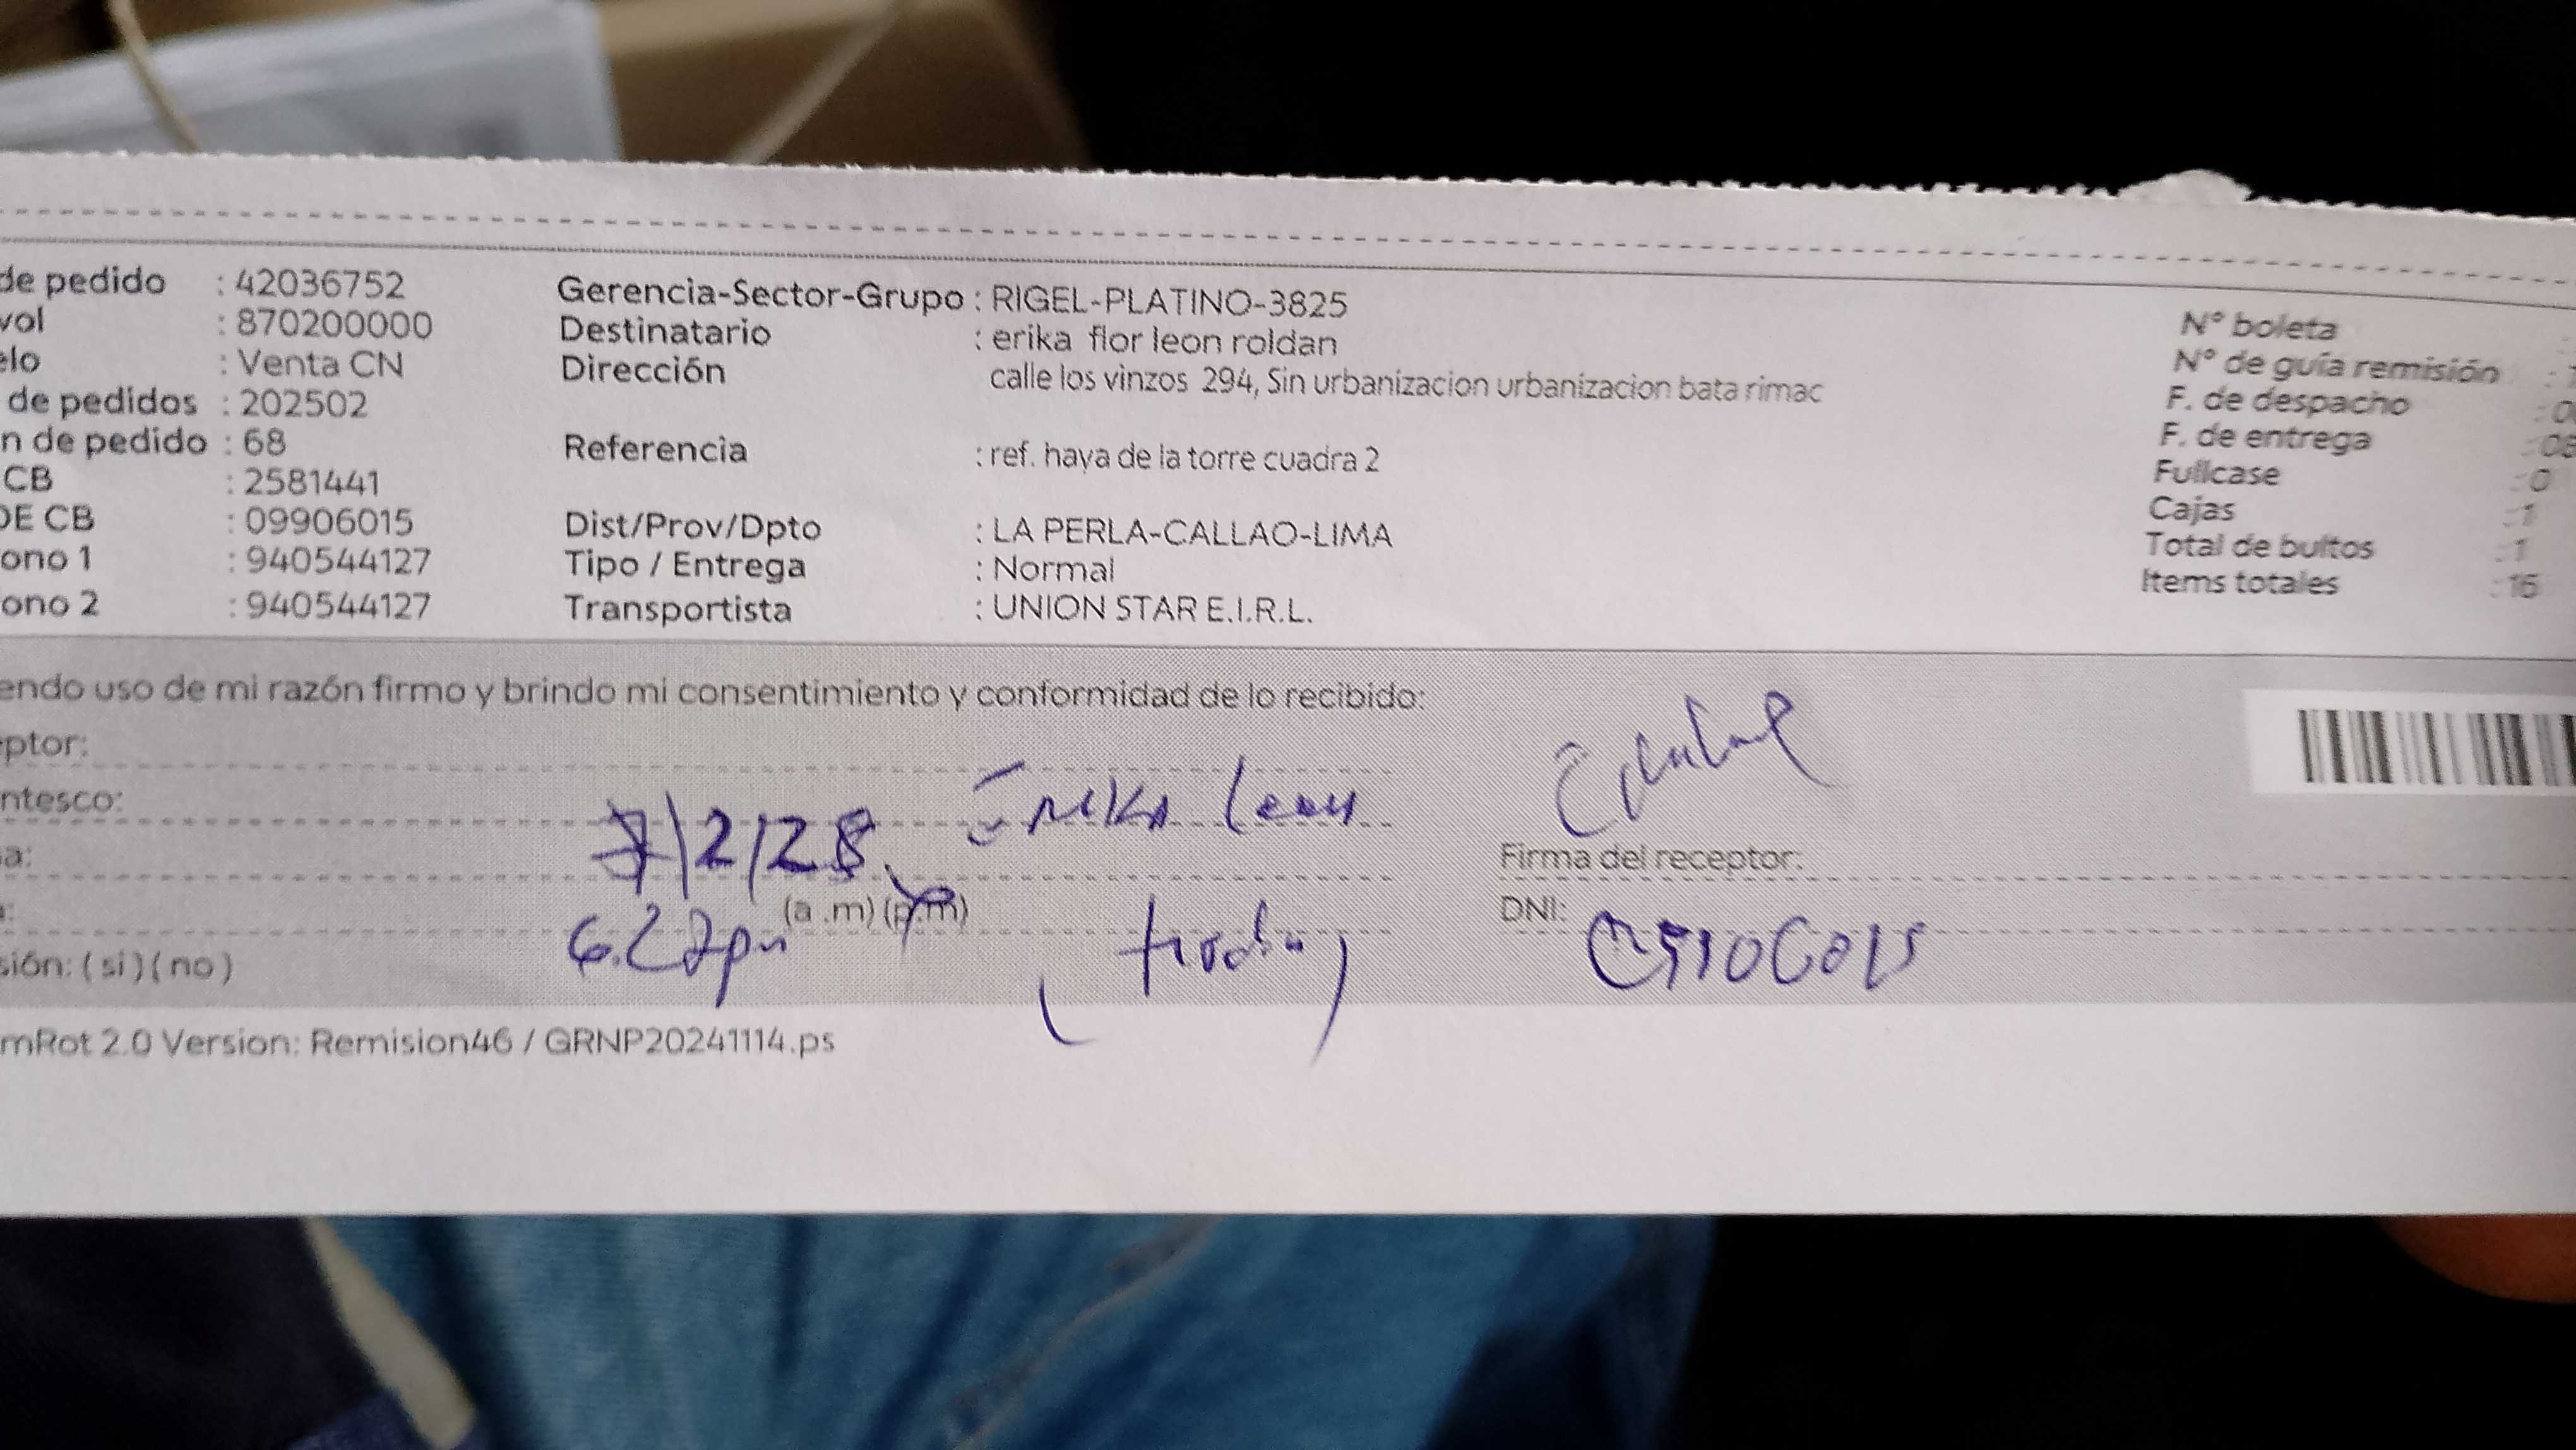 de pedido : 42036752
vol : 870200000
elo : Venta CN
de pedidos : 202502
n de pedido : 68
CB : 2581441
DE CB : 09906015
ono 1 : 940544127
ono 2 : 940544127
Gerencia-Sector-Grupo : RIGEL-PLATINO-3825
Destinatario : erika flor leon roldan
Dirección calle los vinzos 294, Sin urbanizacion urbanizacion bata rimac
Referencia : ref. haya de la torre cuadra 2
Dist/Prov/Dpto : LA PERLA-CALLAO-LIMA
Tipo / Entrega : Normal
Transportista : UNION STAR E.I.R.L.
N° boleta :
N° de guía remisión :
F. de despacho : 0
F. de entrega : 08
Fullcase : 0
Cajas : 1
Total de bultos : 1
Items totales : 16
endo uso de mi razón firmo y brindo mi consentimiento y conformidad de lo recibido:
eptor:
ntesco: Erika Leon
a: 7/2/25
Firma del receptor:
: (a .m) (p.m)
6.27pm
DNI:
sión: ( si ) ( no )
mRot 2.0 Version: Remision46 / GRNP20241114.ps